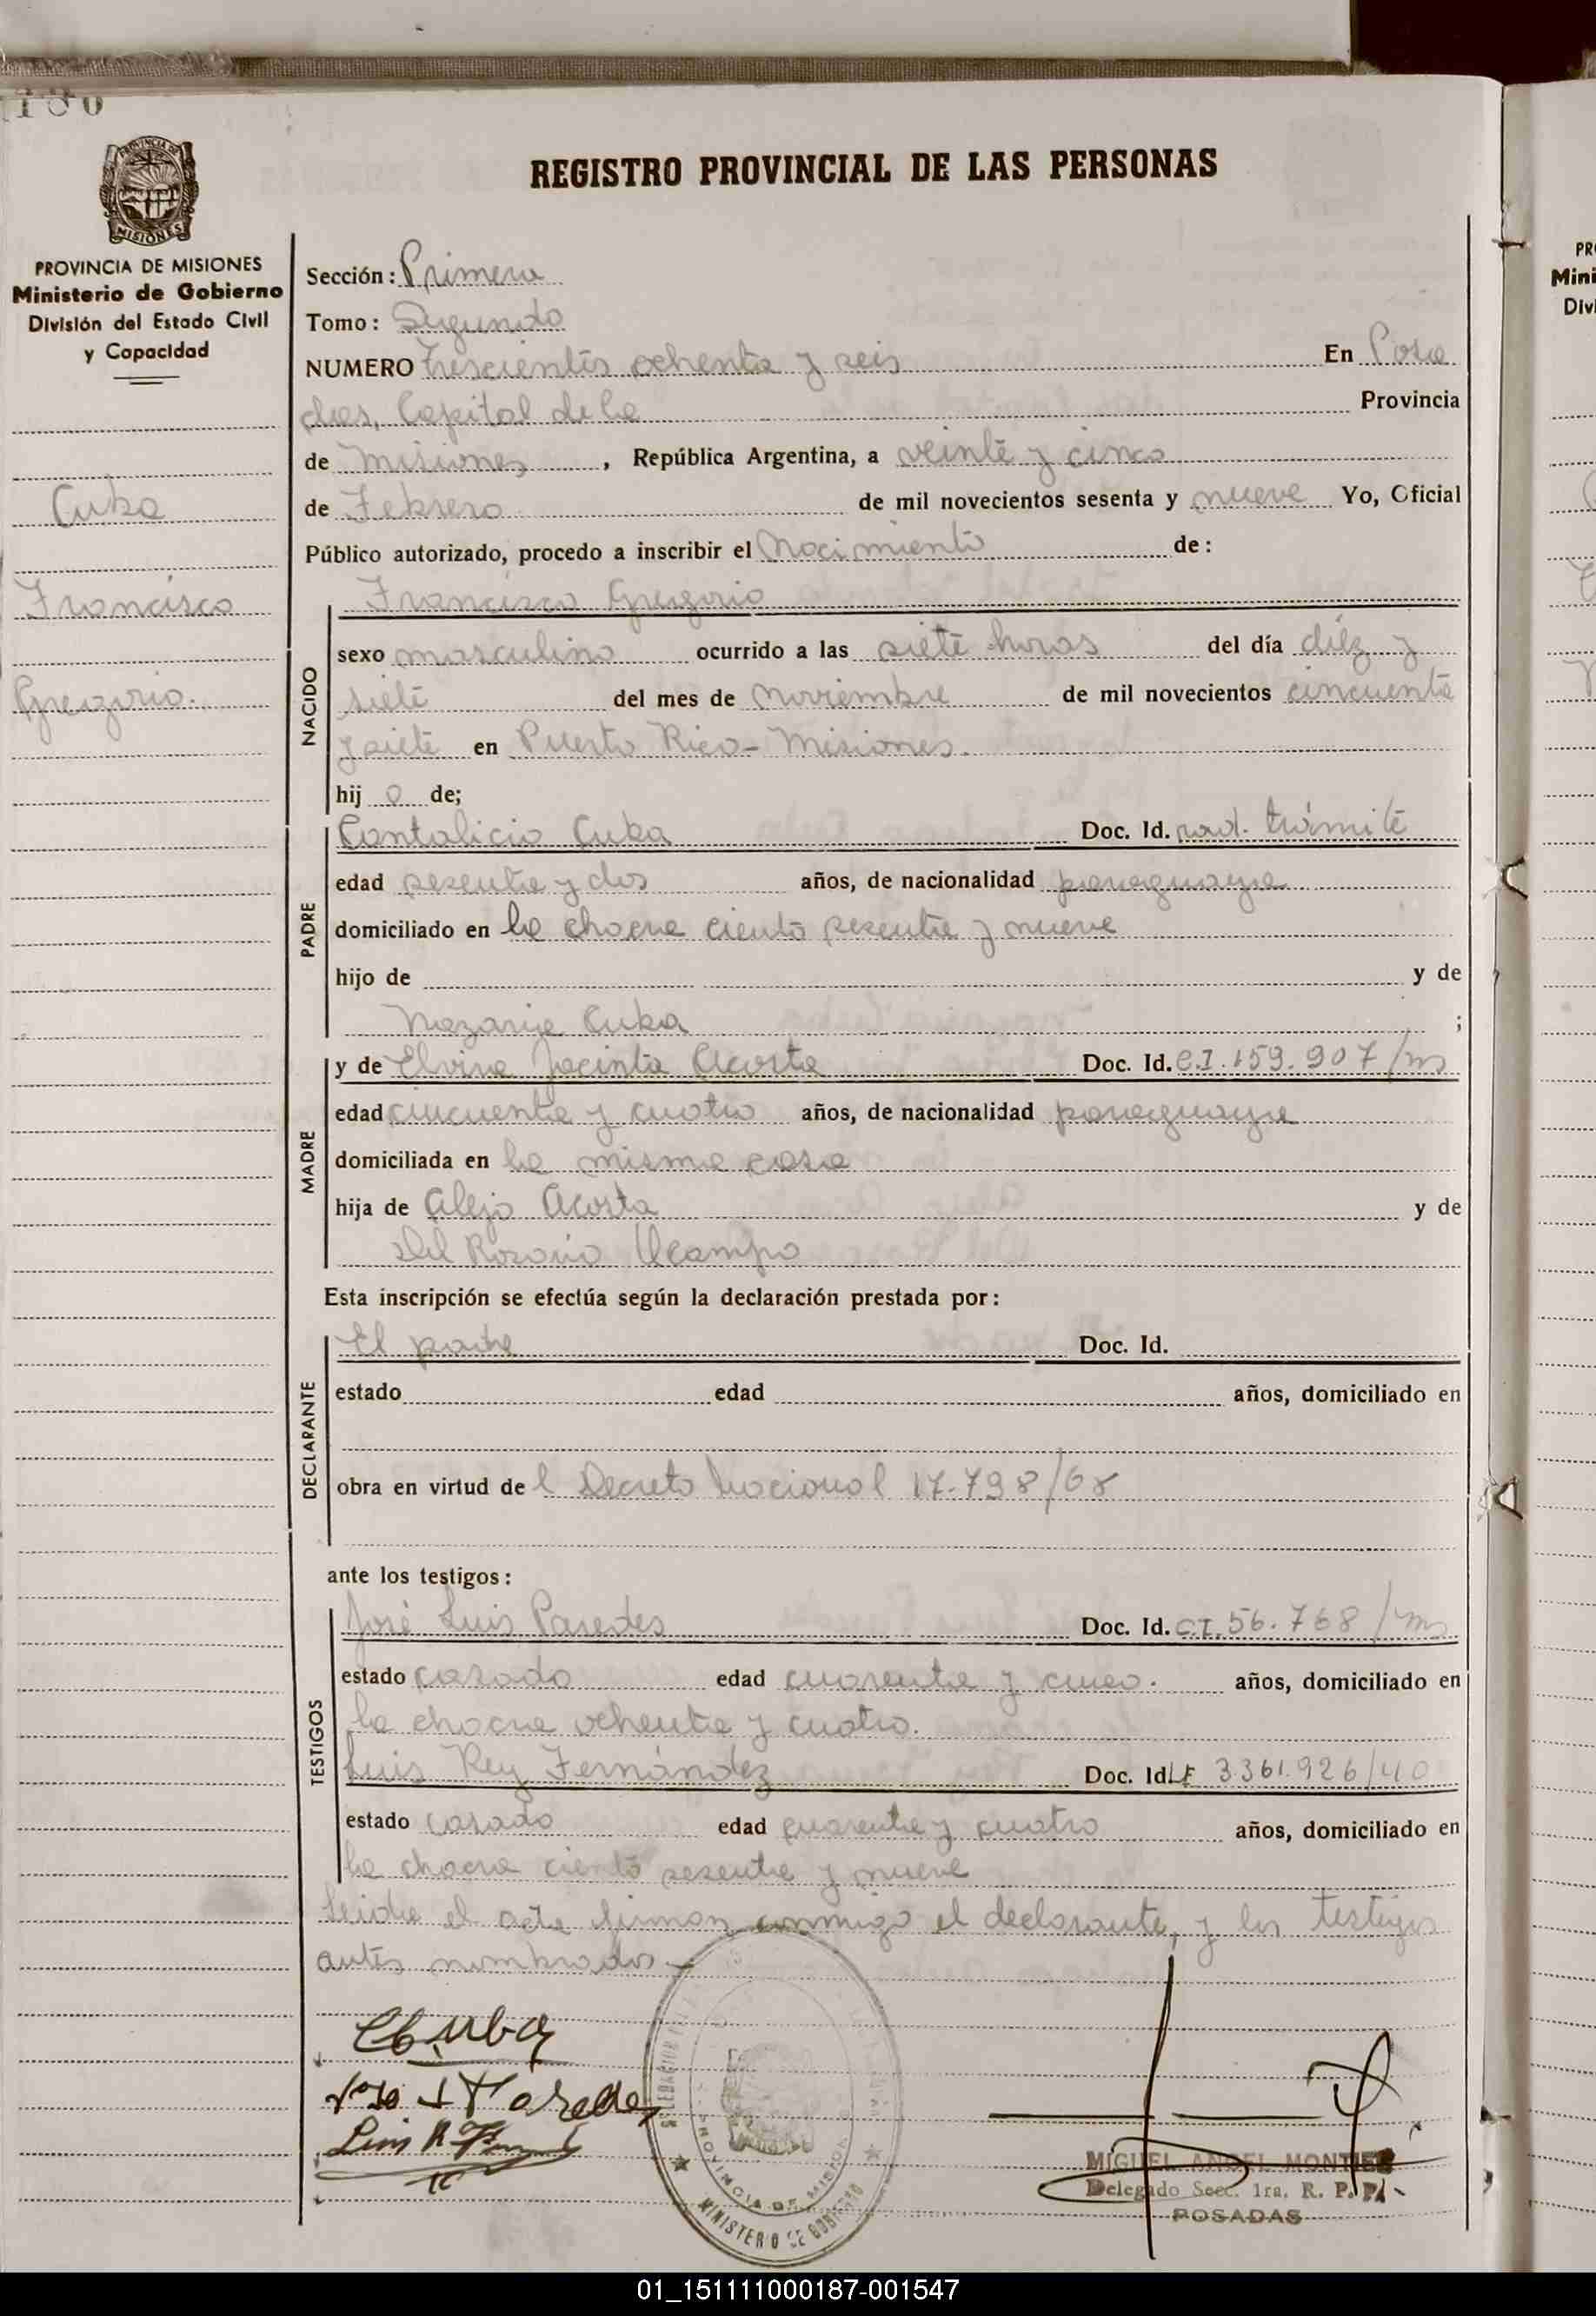 REGISTRO PROVINCIAL DE LAS PERSONAS
MISIONES
PROVINCIA DE MISIONES
Ministerio de Gobierno
División del Estado Civil
y Capacidad
Cuba
Francisco
Gregorio.
Sección: Primera
Tomo: Segundo
NUMERO trescientos ochenta y seis En Posa
das, Capital de la Provincia
de Misiones, República Argentina, a veinte y cinco
de Febrero de mil novecientos sesenta y nueve Yo, Oficial
Público autorizado, procedo a inscribir el Nacimiento de:
Francisco Gregorio
NACIDO
sexo masculino ocurrido a las siete horas del día diéz y
siete del mes de Noviembre de mil novecientos cincuenta
y siete en Puerto Rico - Misiones.
hij o de;
PADRE
Cantalicio Cuba Doc. Id. rad. trámite
edad sesenta y dos años, de nacionalidad paraguaya
domiciliado en la chacra ciento sesenta y nueve
hijo de y de
Nazaria Cuba ;
MADRE
y de Elvira Jacinta Acosta Doc. Id. C.I. 159.907/ms
edad cincuenta y cuatro años, de nacionalidad paraguaya
domiciliada en la misma casa
hija de Alejo Acosta y de
Del Rosario Ocampo
Esta inscripción se efectúa según la declaración prestada por:
DECLARANTE
El padre Doc. Id.
estado edad años, domiciliado en
obra en virtud de l Decreto Nacional 17.798/68
ante los testigos:
TESTIGOS
José Luis Paredes Doc. Id. C.I. 56.768/ms
estado casado edad cuarenta y cinco. años, domiciliado en
la chacra ochenta y cuatro.
Luis Rey Fernández Doc. Id LE 3.361.926/40
estado casado edad cuarenta y cuatro años, domiciliado en
la chacra ciento sesenta y nueve
Leida el acta firman conmigo el declarante, y los testigos
antes nombrados.-
C Cuba
José L Paredes
Luis R Fern
PROVINCIA DE MISIONES
MINISTERIO DE GOBIERNO
MIGUEL ANGEL MONTIEL
Delegado Secc. 1ra. R. P. P.
POSADAS
01_151111000187-001547